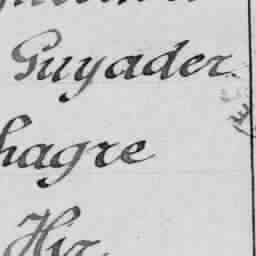 Guyader.
hagre
Hir